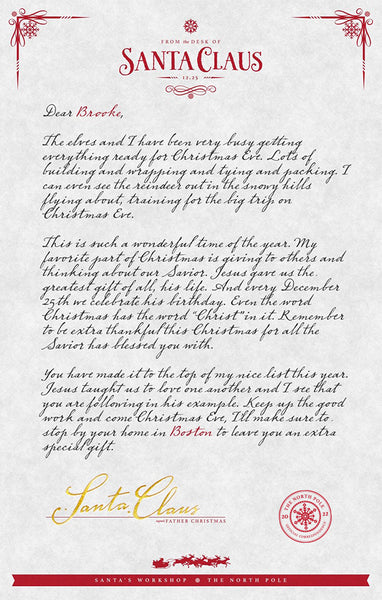 FROM the DESK OF
SANTA CLAUS
12.25
Dear Brooke,
The elves and I have been very busy getting
everything ready for Christmas Eve. Lots of
building and wrapping and tying and packing. I
can even see the reindeer out in the snowy hills
flying about, training for the big trip on
Christmas Eve.
This is such a wonderful time of the year. My
favorite part of Christmas is giving to others and
thinking about our Savior. Jesus gave us the
greatest gift of all, his life. And every December
25th we celebrate his birthday. Even the word
Christmas has the word "Christ" in it. Remember
to be extra thankful this Christmas for all the
Savior has blessed you with.
You have made it to the top of my nice list this year.
Jesus taught us to love one another and I see that
you are following in his example. Keep up the good
work and come Christmas Eve, I'll make sure to
stop by your home in Boston to leave you an extra
special gift.
Santa Claus
FATHER CHRISTMAS
THE NORTH POLE
20 22
OFFICIAL CORRESPONDENCE
SANTA'S WORKSHOP THE NORTH POLE